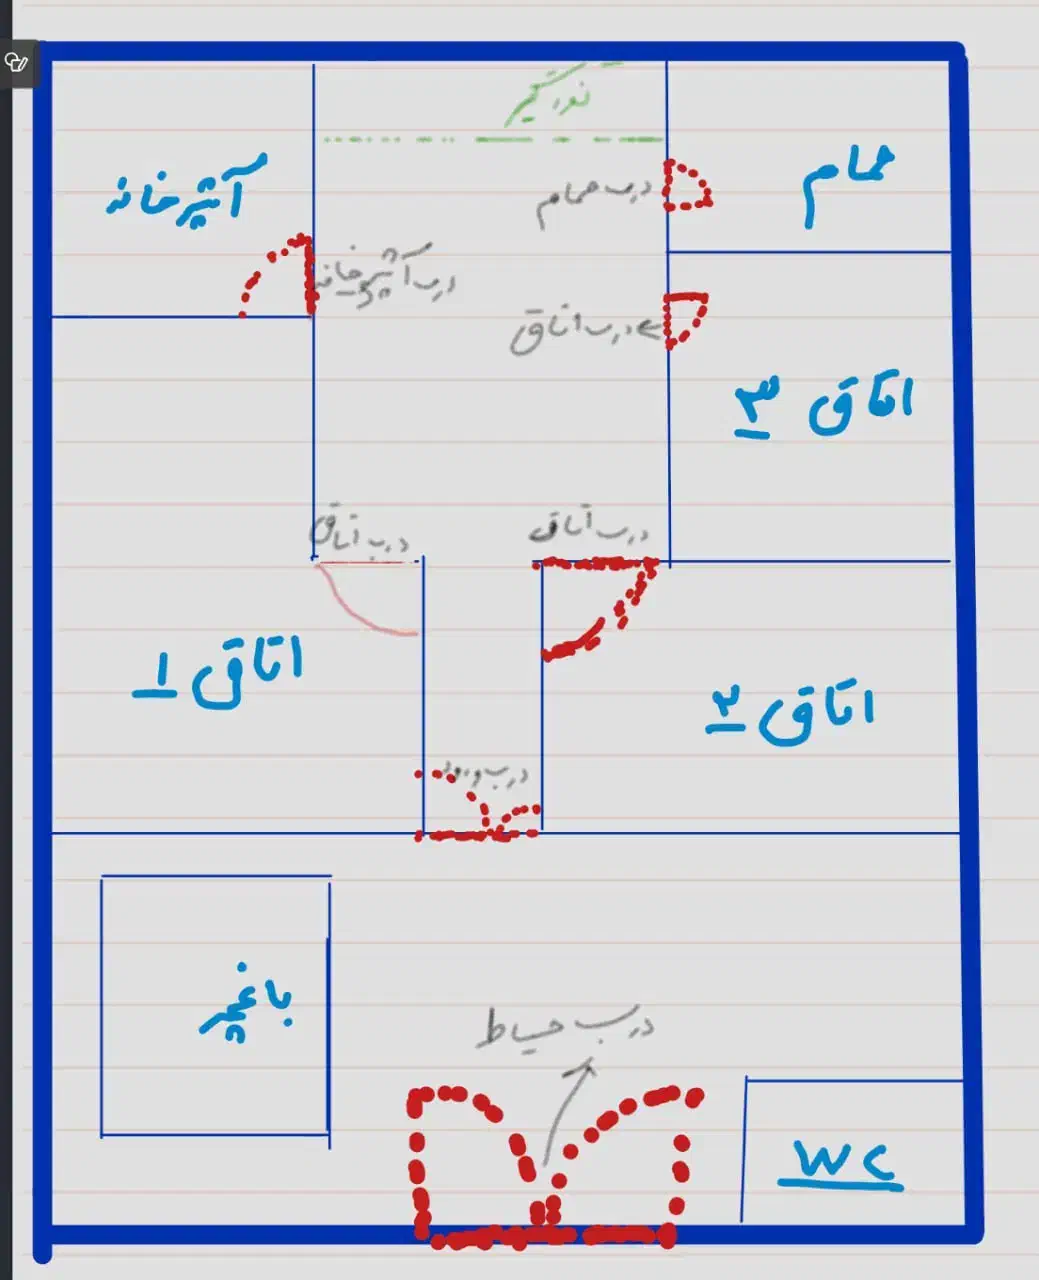 نورگیر
حمام
آشپزخانه
درب حمام
درب آشپزخانه
درب اتاق
اتاق ۳
درب اتاق
درب اتاق
اتاق ۱
اتاق ۲
درب ورود
باغچه
درب حیاط
WC